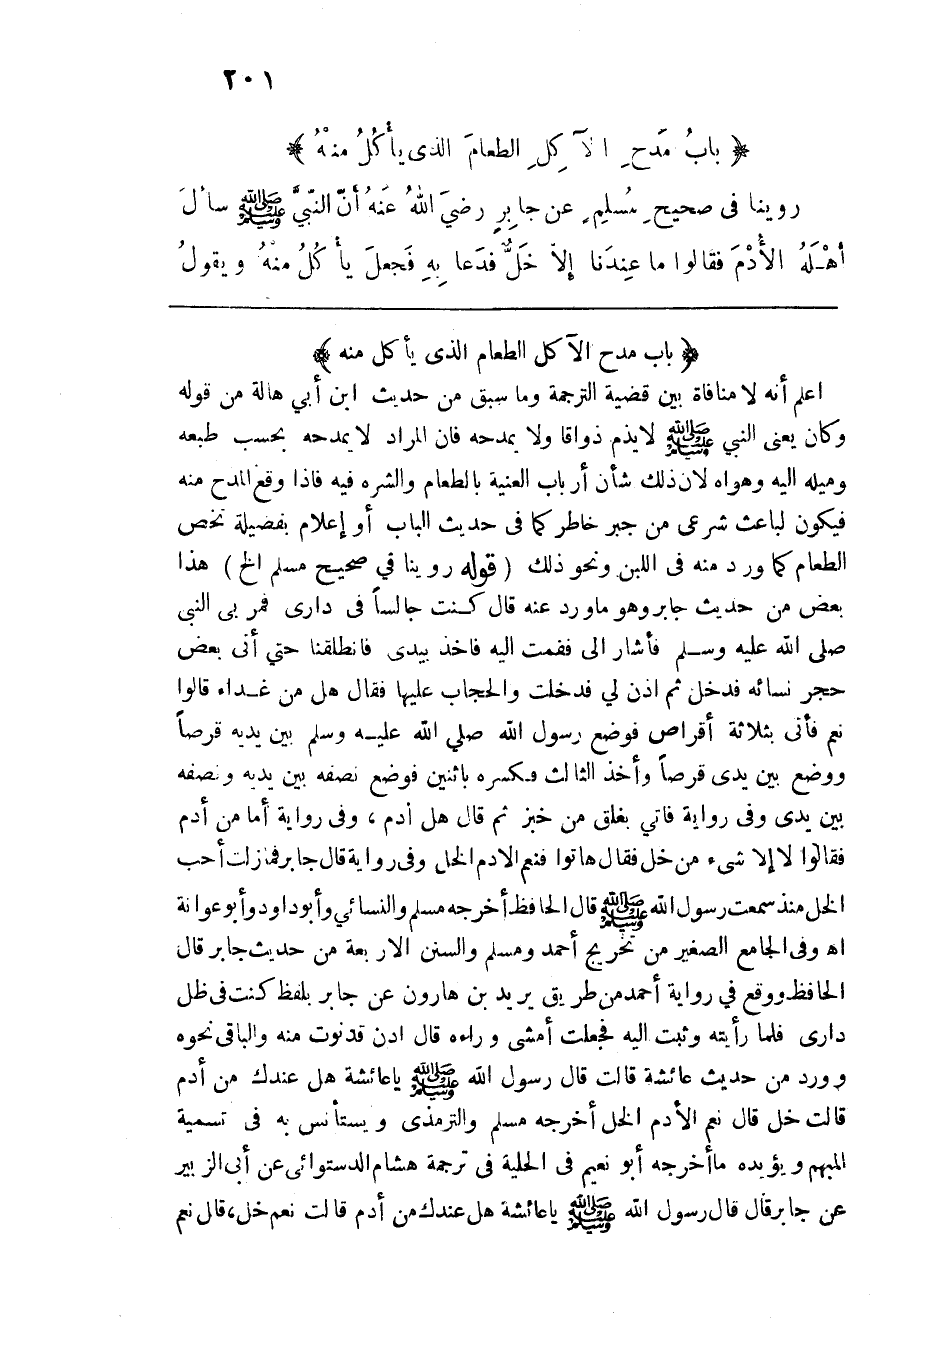 ٢٠١
﴿ بابُ مَدحِ الآكِلِ الطعامَ الذى يأكُلُ منهُ ﴾
روينا فى صحيحِ مُسْلِمٍ عن جابرٍ رضيَ اللهُ عَنهُ أنّ النّبيَّ ﷺ سألَ
أهْلَهُ الأُدْمَ فقالوا ما عِندَنا إلاّ خَلٌّ فدَعا بِهِ فجعلَ يأكُلُ منهُ ويقولُ
﴿ باب مدح الآكل الطعام الذى يأكل منه ﴾
اعلم أنه لا منافاة بين قضية الترجمة وما سبق من حديث ابن أبي هالة من قوله
وكان يعنى النبي ﷺ لايذم ذواقا ولا يمدحه فان المراد لا يمدحه بحسب طبعه
وميله اليه وهواه لان ذلك شأن أرباب العنية بالطعام والشره فيه فاذا وقع المدح منه
فيكون لباعث شرعى من جبر خاطر كما فى حديث الباب أو إعلام بفضيلة تخص
الطعام كما ورد منه فى اللبن ونحو ذلك ( قوله روينا في صحيح مسلم الخ ) هذا
بعض من حديث جابر وهو ماورد عنه قال كنت جالساً فى دارى فمر بى النبى
صلى الله عليه وسلم فأشار الى فقمت اليه فاخذ بيدى فانطلقنا حتي أتى بعض
حجر نسائه فدخل ثم اذن لي فدخلت والحجاب عليها فقال هل من غداء قالوا
نعم فأتى بثلاثة أقراص فوضع رسول الله صلي الله عليه وسلم بين يديه قرصاً
ووضع بين يدى قرصاً وأخذ الثالث فكسره باثنين فوضع نصفه بين يديه ونصفه
بين يدى وفى رواية فاتي بغلق من خبز ثم قال هل أدم ، وفى رواية أما من أدم
فقالوا لا إلا شىء من خل فقال هاتوا فنعم الادم الخل وفى رواية قال جابر فمازلت أحب
الخل منذ سمعت رسول الله ﷺ قال الحافظ أخرجه مسلم والنسائي وأبو داود وأبو عوانة
اه وفى الجامع الصغير من تخريج أحمد ومسلم والسنن الاربعة من حديث جابر قال
الحافظ ووقع في رواية أحمد من طريق يريد بن هارون عن جابر بلفظ كنت فى ظل
دارى فلما رأيته وثبت اليه فجعلت أمشى وراءه قال ادن فدنوت منه والباقى نحوه
وورد من حديث عائشة قالت قال رسول الله ﷺ ياعائشة هل عندك من أدم
قالت خل قال نعم الأدم الخل أخرجه مسلم والترمذى ويستأنس به فى تسمية
المبهم ويؤيده ماأخرجه أبو نعيم فى الحلية فى ترجمة هشام الدستوائى عن أبى الزبير
عن جابر قال قال رسول الله ﷺ ياعائشة هل عندك من أدم قالت نعم خل، قال نعم